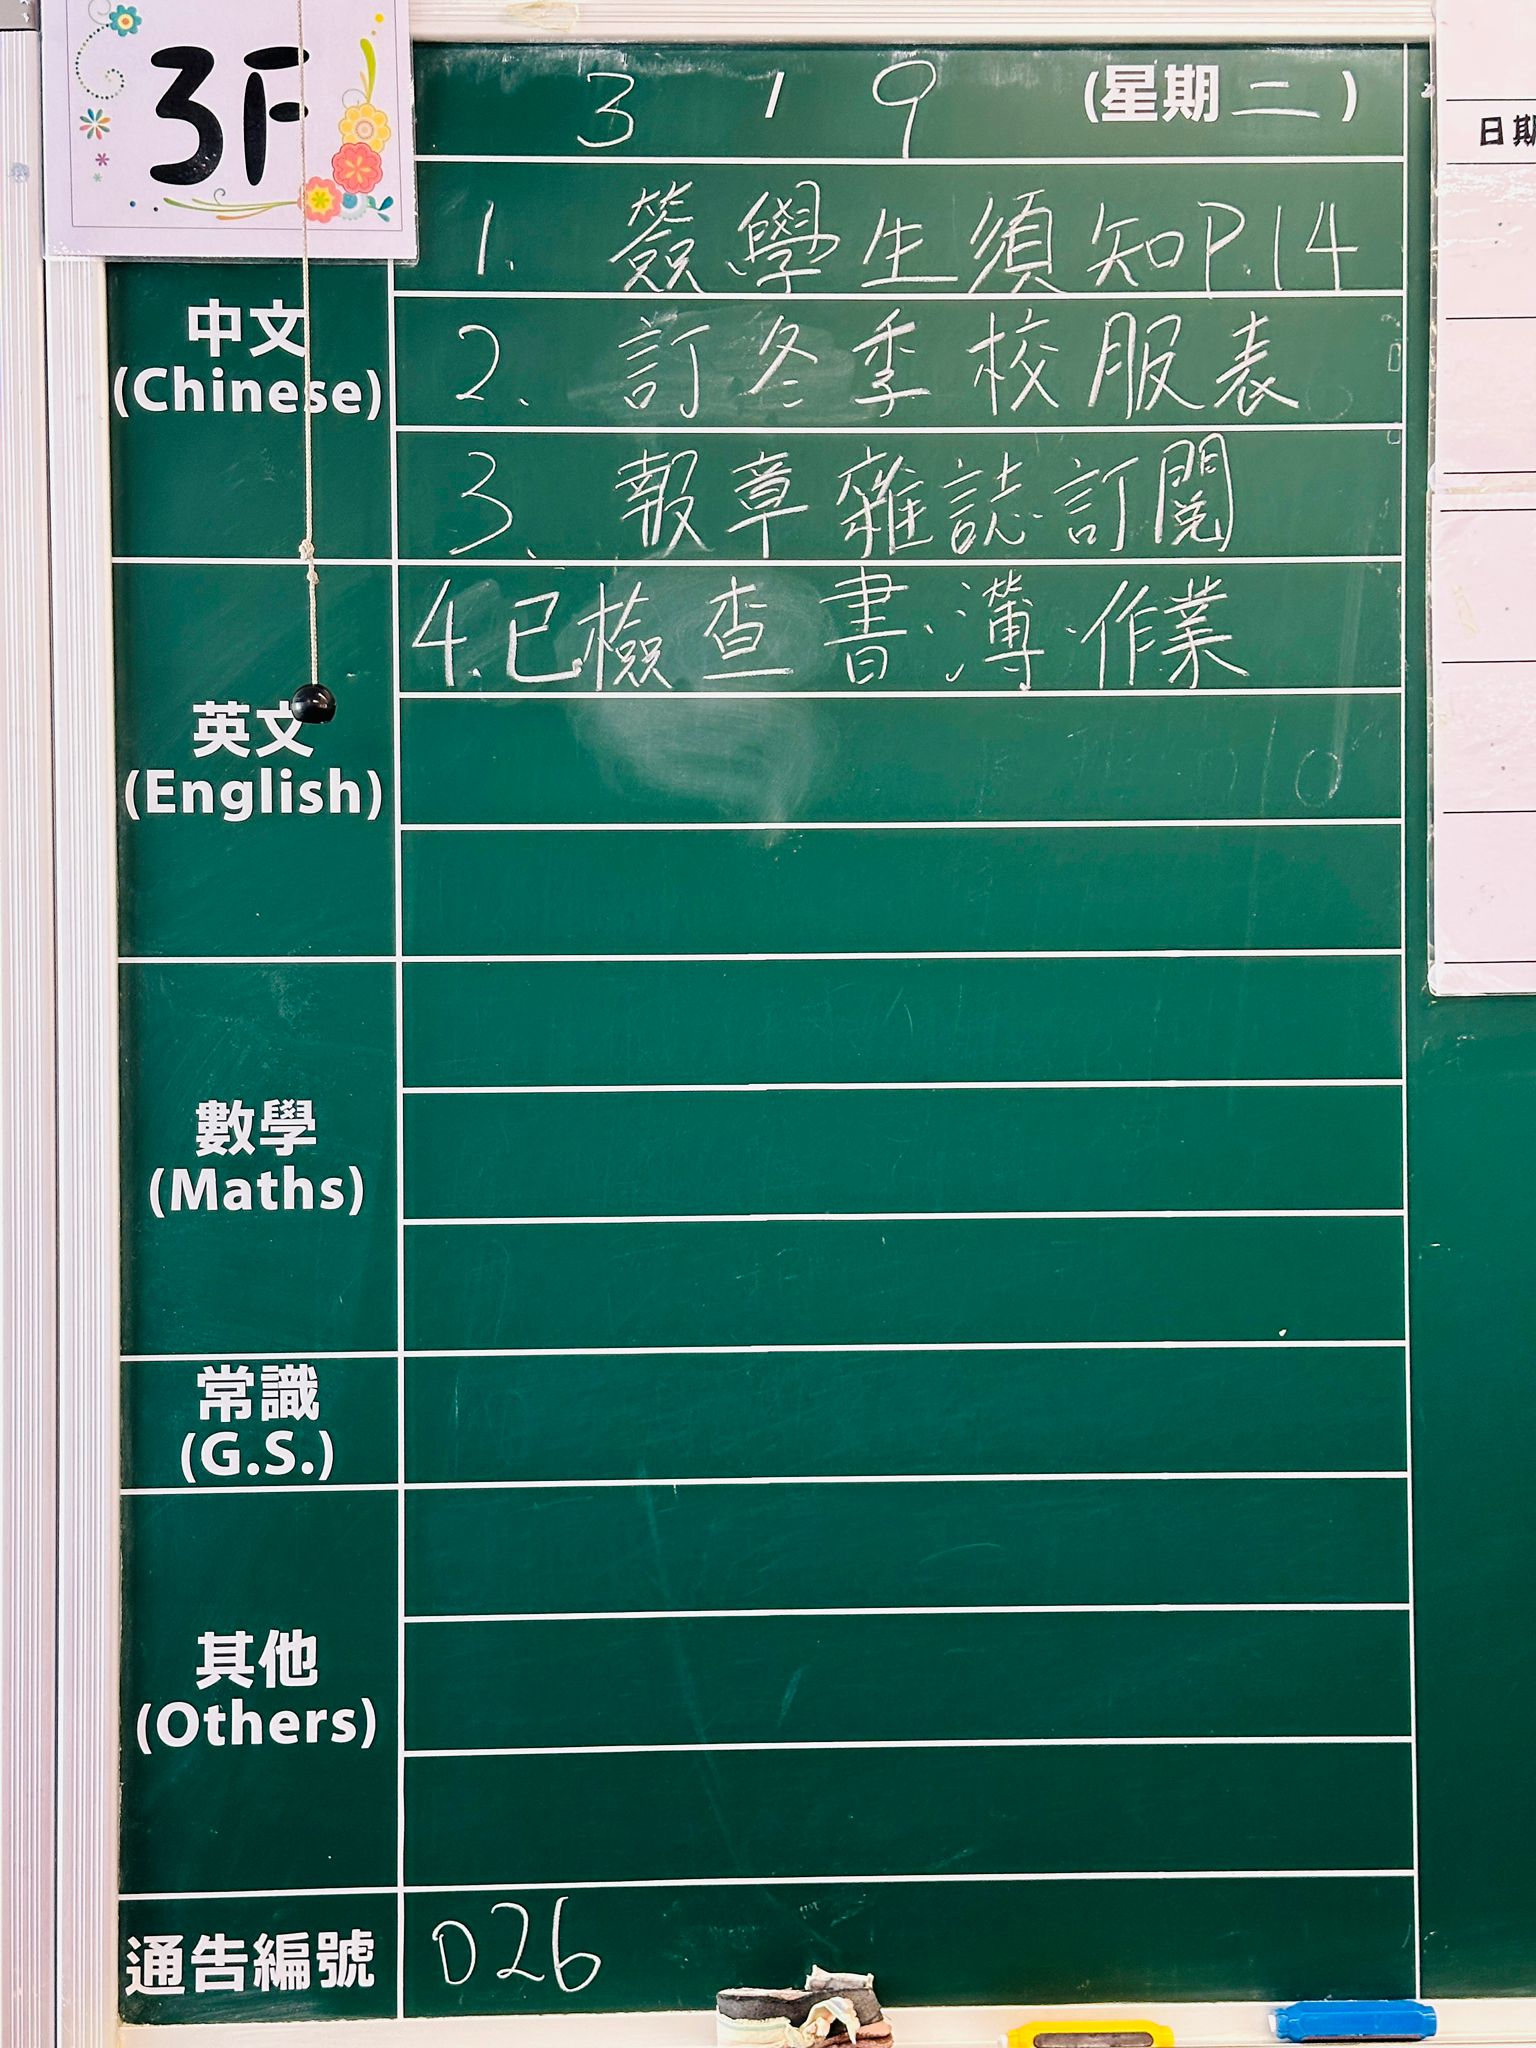 3F
3 / 9 (星期二)
日期
1. 簽學生須知P.14
中文
(Chinese)
2. 訂冬季校服表
3. 報章雜誌訂閱
4. 已檢查書、簿、作業
英文
(English)
數學
(Maths)
常識
(G.S.)
其他
(Others)
通告編號
026